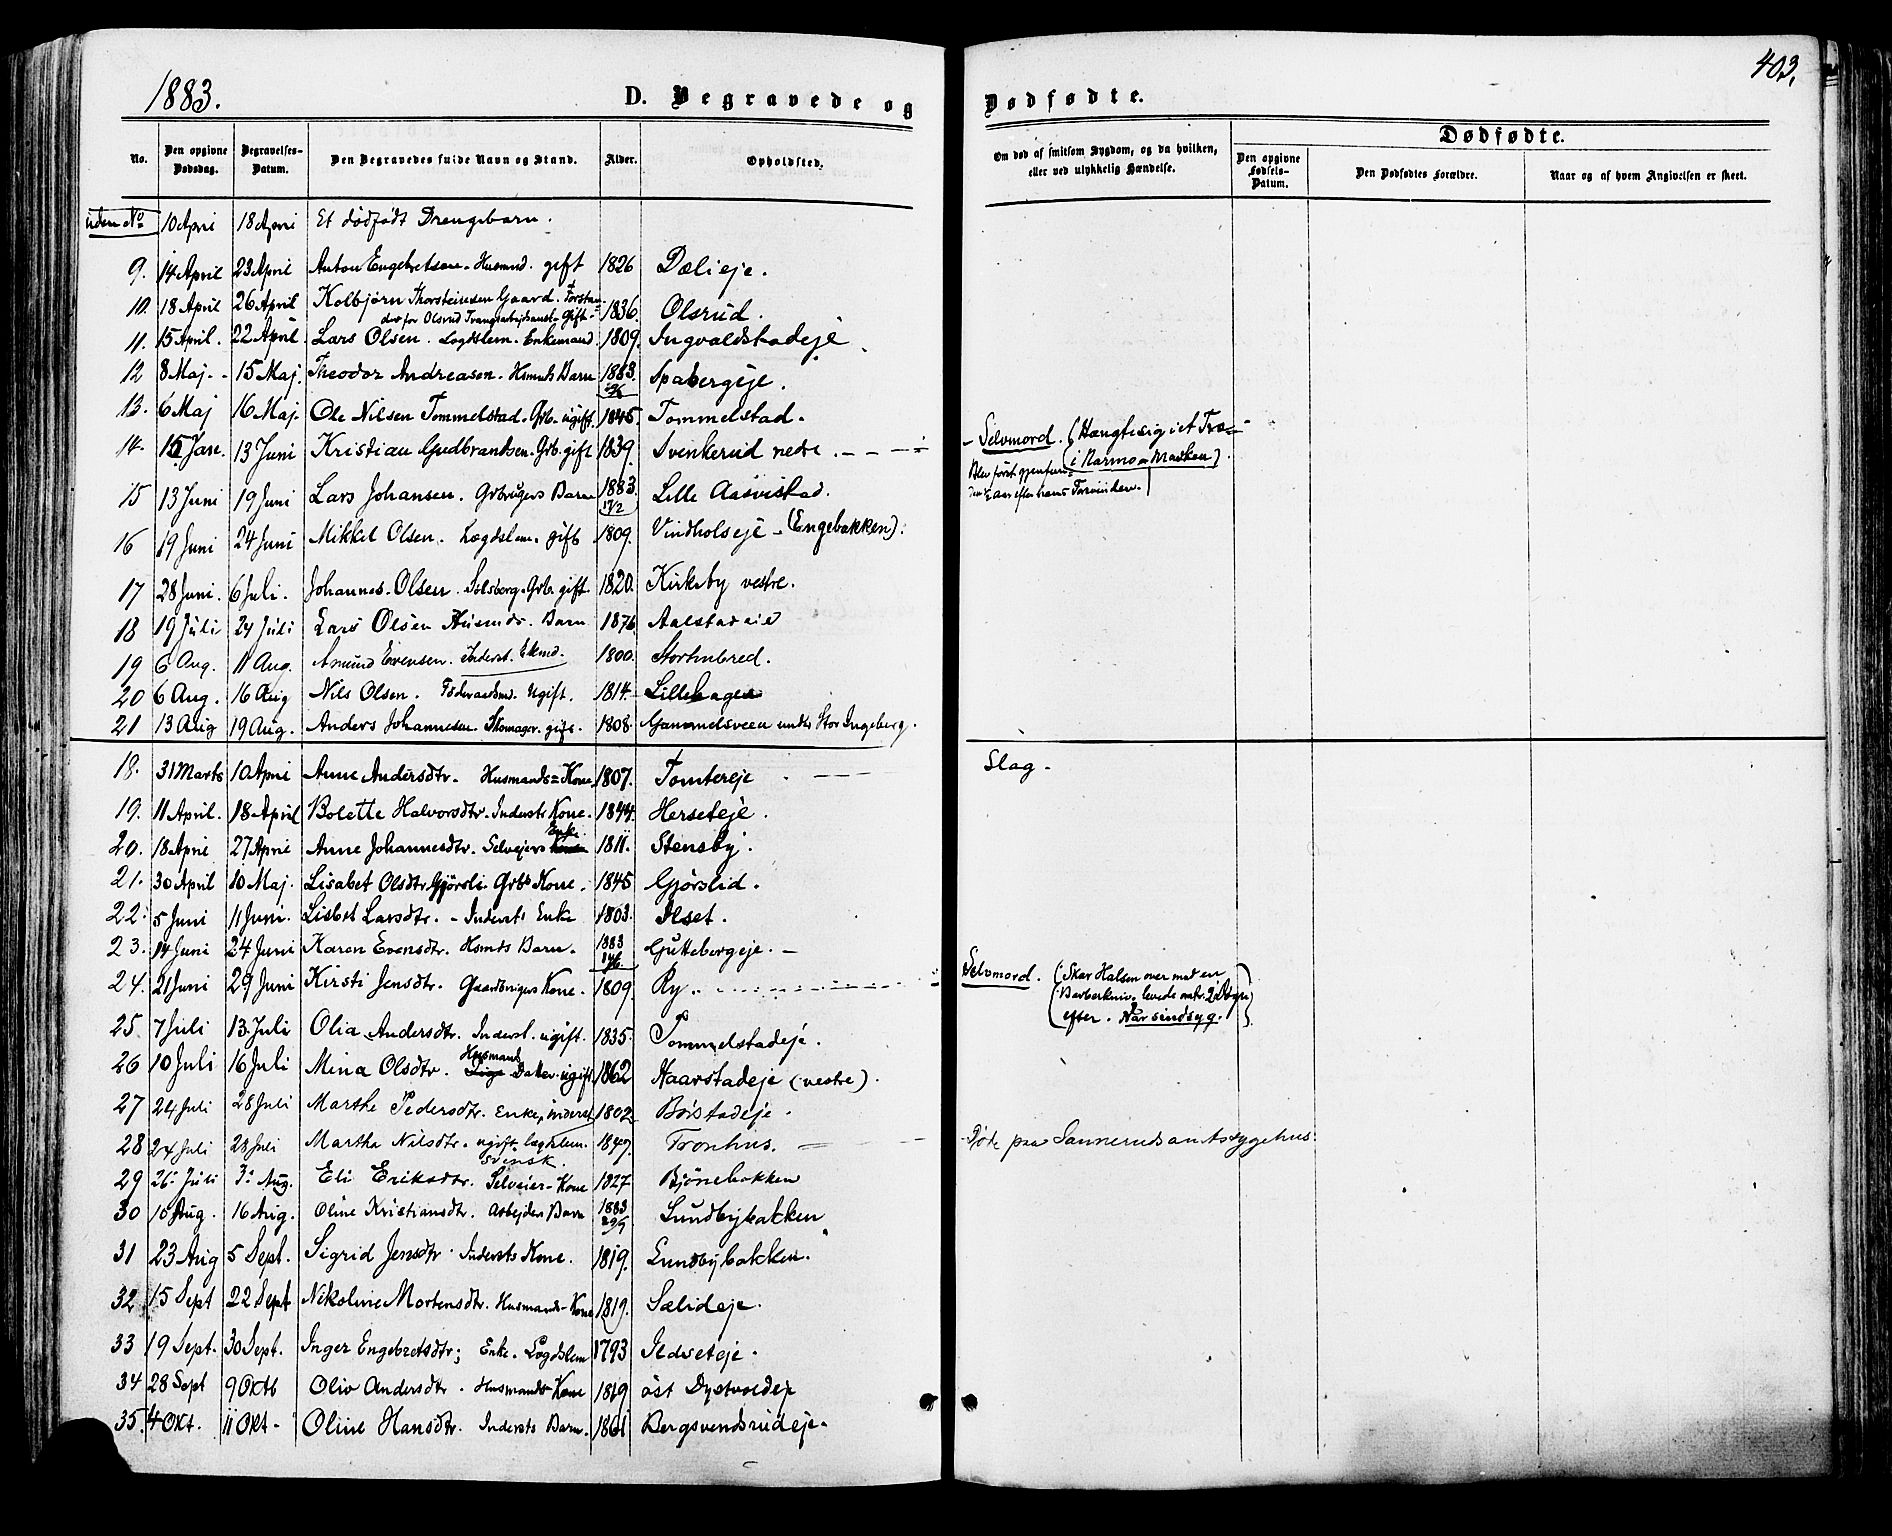 1883.
D. Begravede og
Dødfødte.
403,
No.
Den opgivne Dødsdag.
Begravelses-Datum.
Den Begravedes fulde Navn og Stand.
Alder.
Opholdsted.
Om død af smitsom Sygdom, og da hvilken, eller ved ulykkelig Hændelse.
Dødfødte.
Den opgivne Fødsels-Datum.
Den Dødfødtes Forældre.
Naar og af hvem Angivelsen er skeet.
uden No 10 April 18 April Et dødfødt Drengebarn.
9. 14 April 23 April Anton Engebretsen - Husmd. gift 1826 Dælieje.
10. 18 April 26 April Kolbjørn Thorsteinsen Gaard. Forstan-
der for Olsrud Tvangsarbeidsanst. - Gift - 1836. Olsrud.
11. 15 April. 22 April Lars Olsen. Lægdslem. Enkemand. 1809. Ingvaldstadeje
12 8 Maj. - 15 Maj. Theodor Andreasen. Hsmds Barn 1883. Spabergeje.
13. 6 Maj 16 Maj. Ole Nilsen Tommelstad. Grb. ugift. 1845. Tommelstad.
14. 15 Jan. 13 Juni Kristian Gudbrandsen. Grb. gift 1839. Svenkerud nedre. - Selvmord. (Hængte sig i et Træ
i Narmo-Marken).
Blev først gjenfun-
den ½ aar efter hans Forsvinden.
15 13 Juni 19 Juni Lars Johansen. Grbrugers Barn 1883. Lille Aasvestad.
16 19 Juni 24 Juni Mikkel Olsen. Lægdslem. gift 1809. Vindholseje - (Engebakken).
17 28 Juni. 6 Juli. Johannes Olsen. Solsberg. Grb. gift. 1820. Kirkeby vestre.
18 19 Juli 24 Juli Lars Olsen Husmds. Barn 1876 Aalstadeie
19 6 Aug. 11 Aug. Amund Evensen. Inderst. Ekmd. 1800. Storhubred.
20 6 Aug. 16 Aug Nils Olsen. Føderaadsmd. Ugift. 1814. Lillehagen
21 13 Aug 19 Aug. Anders Johannesen. Skomager. gift. 1808. Gammelsveen under Stor Ingeberg.
18. 31 Marts 10 April Anne Andersdtr. Husmands=Kone 1807. Tomtereje - Slag -
19. 11 April. 18 April Bolette Halvorsdtr. Inderst. Kone. 1844. Herseteje.
20. 18 April 27 April Anne Johannesdtr. Selvejers Enke. 1811. Stensby.
21. 30 April 10 Maj. Lisabet Olsdtr. Gjørsli. Grbs Kone. 1845 Gjørslid.
22. 5 Juni 11 Juni. Lisbet Larsdtr. - Inderst. Enke 1803. Ilset.
23. 14 Juni 24 Juni Karen Evensdtr. Hsmds Barn. 1883 Guttebergeje. -
24. 21 Juni 29 Juni Kirsti Jensdtr. Gaardbrugers Kone. 1809. Ry. Selvmord. (Skar Halsen over med en
Barberkniv. levede omtr. 2 Døgn
efter. Var sindsyg.)
25. 7 Juli 13. Juli Olia Andersdtr. Inderst. ugift. 1835. Tommelstadeje.
26 10 Juli 16 Juli Mina Olsdtr. Husmand Datter. ugift. 1862 Haarstadeje (vestre).
27 24 Juli 28 Juli Marthe Pedersdtr. Enke, inderst 1802. Børstadeje.
28 24 Juli 28 Juli Martha Nilsdtr. ugift. lægdslem. svensk. 1847. Tronhus. - Døde paa Sanneruds amtssygehus.
29 26. Juli 3. Aug. Eli Eriksdtr. Selveier-Kone 1827 Bjønebakken
30 10 Aug. 16 Aug. Oline Kristiansdtr. Arbejder Barn 1883 Lundbybakken
31 23 Aug 5 Sept. Sigrid Jensdtr.Indersts Kone. 1819. Lundbybakken.
32 15 Sept 22 Sept Nikoline Mortensdtr. Husmands-Kone 1819. Sælideje.
33 19 Sept. 30 Sept. Inger Engebretsdtr; Enke. Lægdslem 1793 Ildseteje.
34 28 Sept 9 Oktb Oliv Andersdtr. Husmands Kone 1819 øst Dystvoldeje
35. 4 Okt. 11 Okt - Oline Hansdtr. Indersts Barn. 1861 Bergsvendsrudeje.